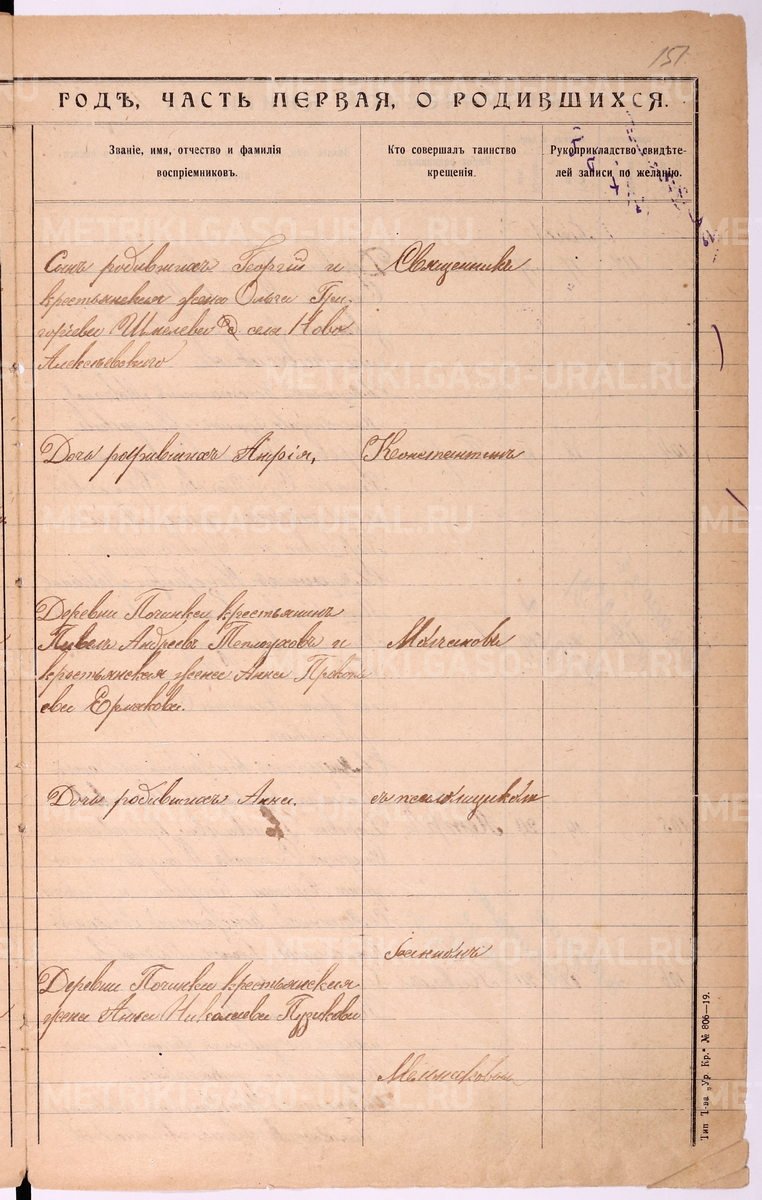 151
ГОДѢ, ЧАСТЬ ПЕРВАЯ, О РОДИВШИХСЯ.
Званіе, имя, отчество и фамилія
воспріемниковъ.
Кто совершалъ таинство
крещенія.
Рукоприкладство свидѣте-
лей записи по желанію.
Сынъ родившихъ Георгій и
крестьянская жена Ольга Гри-
горіева Шмелева села Ново
Алексѣевского
Священникъ
Дочь родившихъ
Константинъ
Деревни Починка крестьянинъ
Павелъ Андреевъ Теплоуховъ и
крестьянская жена Анна Прокопі
ева Ермакова.
Дочь родившихъ Анна.
съ псаломщикомъ
Деревни Починка крестьянская
жена Анна Николаева Пузикова
METRIKI.GASO-URAL.RU
Тип. Т-ва „Ур. Кр.“ № 806—19.